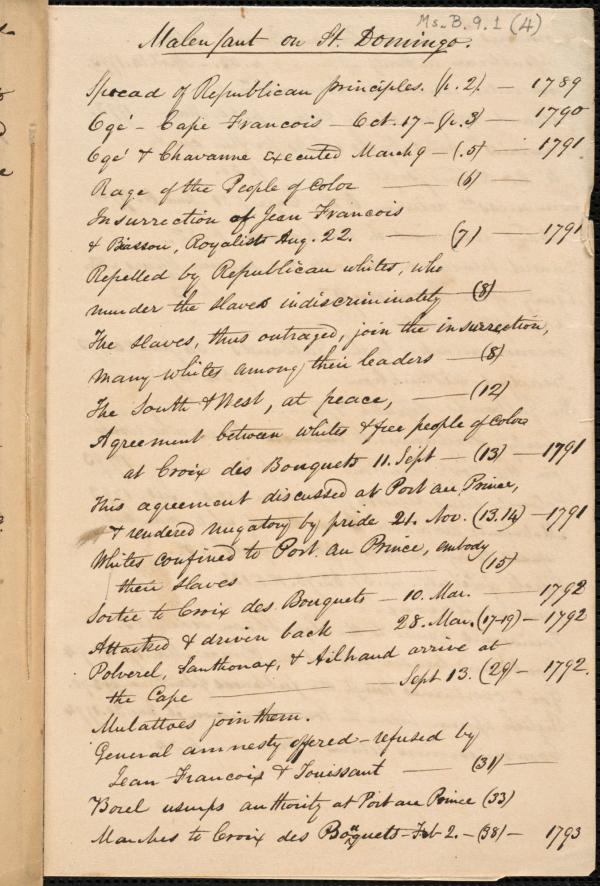 Ms. B. 9. 1 (4)
Malenfant on St. Domingo.
Spread of Republican principles. (p. 2) — 1789
Ogé — Cape Francois — Oct. 17 — (p. 3) — 1790
Ogé & Chavanne executed March 9 — (.5) — 1791
Rage of the People of Color — (6) —
Insurrection of Jean Francois
& Biassou, Royalists Aug. 22. — (7) — 1791
Repelled by Republican whites, who
murder the slaves indiscriminately — (8)
The slaves, thus outraged, join the insurrection,
many whites among their leaders — (8)
The South & West, at peace, — (12)
Agreement between whites & free people of color
at Croix des Bouquets 11. Sept — (13) — 1791
This agreement discussed at Port au Prince,
& rendered nugatory by pride 21. Nov. (13.14) — 1791
Whites confined to Port au Prince, embody
their slaves — (15)
Sortie to Croix des Bouquets — 10. Mar. — 1792
Attacked & driven back — 28. Mar. (17-19) — 1792
Polverel, Santhonax, & Ailhaud arrive at
the Cape — Sept 13. (29) — 1792.
Mulattoes join them.
General amnesty offered — refused by
Jean Francois & Touissant — (31) —
Borel usurps authority at Port au Prince (33)
Marches to Croix des Bouquets — Feb 2. — (38) — 1793